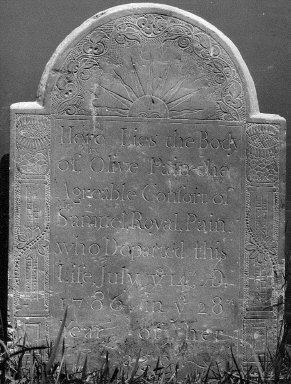 Here Lies the Body
of Olive Pain the
Agreable Consort of
Samuel Royal Pain,
who Departed this
Life July yͤ 14, A.D.
1786, in yͤ 28
year of her